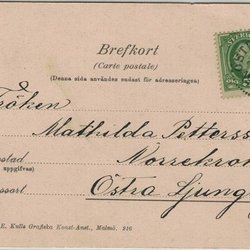 Brefkort
(Carte postale)
(Denna sida användes endast för adresseringen)
SVERIGE
röken
Mathilda Petterss
Norrekro
stad
uppgifvas)
Östra Ljung
ssort
E. Kulls Grafiska Konst-Anst., Malmö. 316